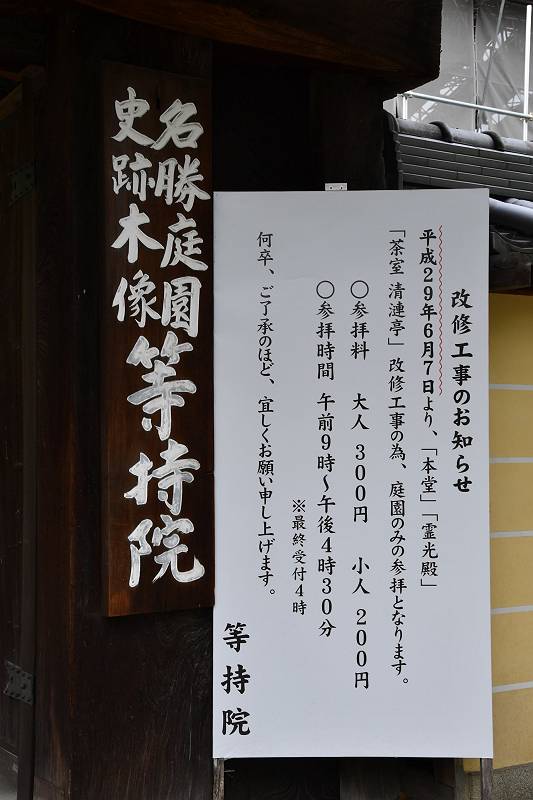 改修工事のお知らせ
平成29年6月7日より、「本堂」「霊光殿」
「茶室 清漣亭」改修工事の為、庭園のみの参拝となります。
○参拝料 大人 300円 小人 200円
○参拝時間 午前9時～午後4時30分
※最終受付4時
何卒、ご了承のほど、宜しくお願い申し上げます。
等持院
名勝庭園
史跡木像
等持院